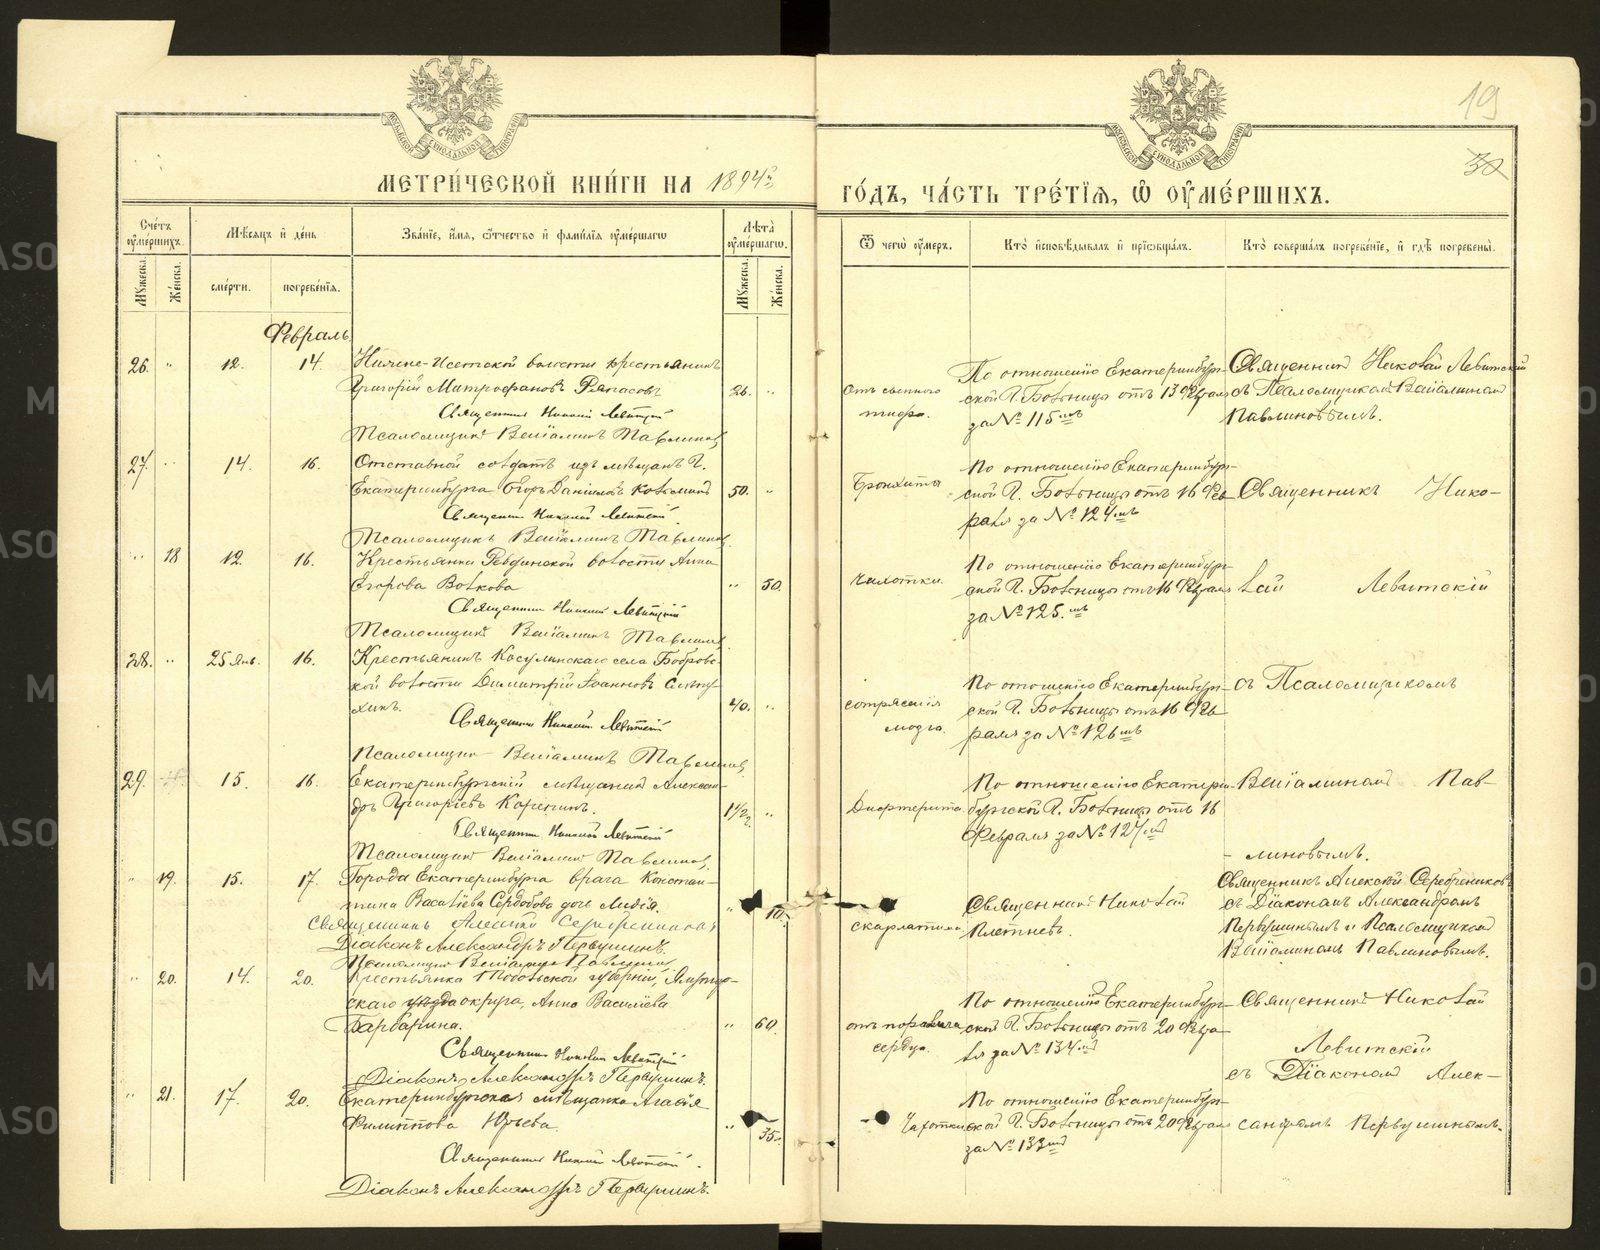 19
30
МЕТРИ́ЧЕСКОЙ КНИ́ГИ НА 1894й
ГО́ДЪ, ЧА́СТЬ ТРЕ́ТІѦ, Ѡ҆ ОУ҆МЕ́РШИХЪ.
Сче́тъ оу҆ме́ршихъ.
Мѣ́сѧцъ и҆ де́нь
Зва́нїе, и҆́мѧ, ѻ҆́тчество и҆ фамѝлїѧ оу҆ме́ршагѡ
Лѣ́та оу҆ме́ршагѡ.
Ѿ чегѡ̀ оу҆́меръ.
Кто̀ и҆сповѣ́дывалъ и҆ прїѡбща́лъ.
Кто̀ соверша́лъ погребе́нїе, и҆ гдѣ̀ погребены̀.
Мꙋ́жеска.
Же́нска.
сме́рти.
погребе́нїѧ.
Мꙋ́жеска.
Же́нска.
Февраль
26. " 12. 14. Нижне-Исетской волости крестьянинъ
Григорій Митрофановъ 26. "
Священникъ Николай Левитскій
Псаломщикъ Веніаминъ Павлиновъ
Отъ сыпного
тифа.
По отношенію Екатеринбург-
ской Г. Больницы отъ 13 Февраля
за № 115мъ
Священникъ Николай Левитскій
съ Псаломщикомъ Веніаминомъ
Павлиновымъ.
27. " 14. 16. Отставной солдатъ изъ мѣщанъ Г.
Екатеринбурга Егоръ Даніиловъ 50. "
Священникъ Николай Левитскій.
Псаломщикъ Веніаминъ Павлиновъ.
Бронхита
По отношенію Екатеринбург-
ской Г. Больницы отъ 16 Фев
раля за № 124мъ
Священникъ Нико-
" 18 12. 16. Крестьянка Ревдинской волости Анна
Егорова Волкова " 50.
Священникъ Николай Левитскій
Псаломщикъ Веніаминъ Павлиновъ
Чахотки.
По отношенію Екатеринбург-
ской Г. Больницы отъ 16 Февраля
за № 125.мъ
лай Левитскій
28. " 25 Янв. 16. Крестьянинъ Косулинскаго села Бобровс-
кой волости Димитрій Іоанновъ
хинъ. 40. "
Священникъ Николай Левитскій
Псаломщикъ Веніаминъ Павлиновъ
сотрясенія
мозга.
По отношенію Екатеринбург-
ской Г. Больницы отъ 16 Фев
раля за № 126мъ
съ Псаломщикомъ
29. 15. 16. Екатеринбургскій мѣщанинъ Алексан-
дръ Григорьевъ Корепинъ. 1 1/2 г. "
Священникъ Николай Левитскій
Псаломщикъ Веніаминъ Павлиновъ.
Дифтерита.
По отношенію Екатерин
бургской Г. Больницы отъ 16
Февраля за № 127мъ
Веніаминомъ Пав-
- линовымъ.
" 19. 15. 17. Города Екатеринбурга врача Констан-
тина Васильева Сердобова дочь Лидія. " 10.
Священникъ Алексій Серебренниковъ
Діаконъ Александръ Первушинъ.
Псаломщикъ Веніаминъ Павлиновъ
скарлатины
Священникъ Николай
Плетневъ.
Священникъ Алексій Серебренниковъ
съ Діакономъ Александромъ
Первушинымъ и Псаломщикомъ
Веніаминомъ Павлиновымъ.
" 20. 14. 20. Крестьянка Тобольской губерніи,
скаго уѣзда округа, Анна Васильева
Барбарина. " 60.
Священникъ Николай Левитскій
Діаконъ Александръ Первушинъ.
отъ порока
сердца.
По отношенію Екатеринбург-
ской Г. Больницы отъ 20 Февра
ля за № 134мъ
Священникъ Николай
Левитскій
съ Діакономъ Алек-
" 21. 17. 20. Екатеринбургская мѣщанка Агафія
Филиппова Юрьева. " 35.
Священникъ Николай Левитскій.
Діаконъ Александръ Первушинъ.
Чахотки
По отношенію Екатеринбург-
ской Г. Больницы отъ 20 Февраля
за № 133мъ
сандромъ Первушинымъ.